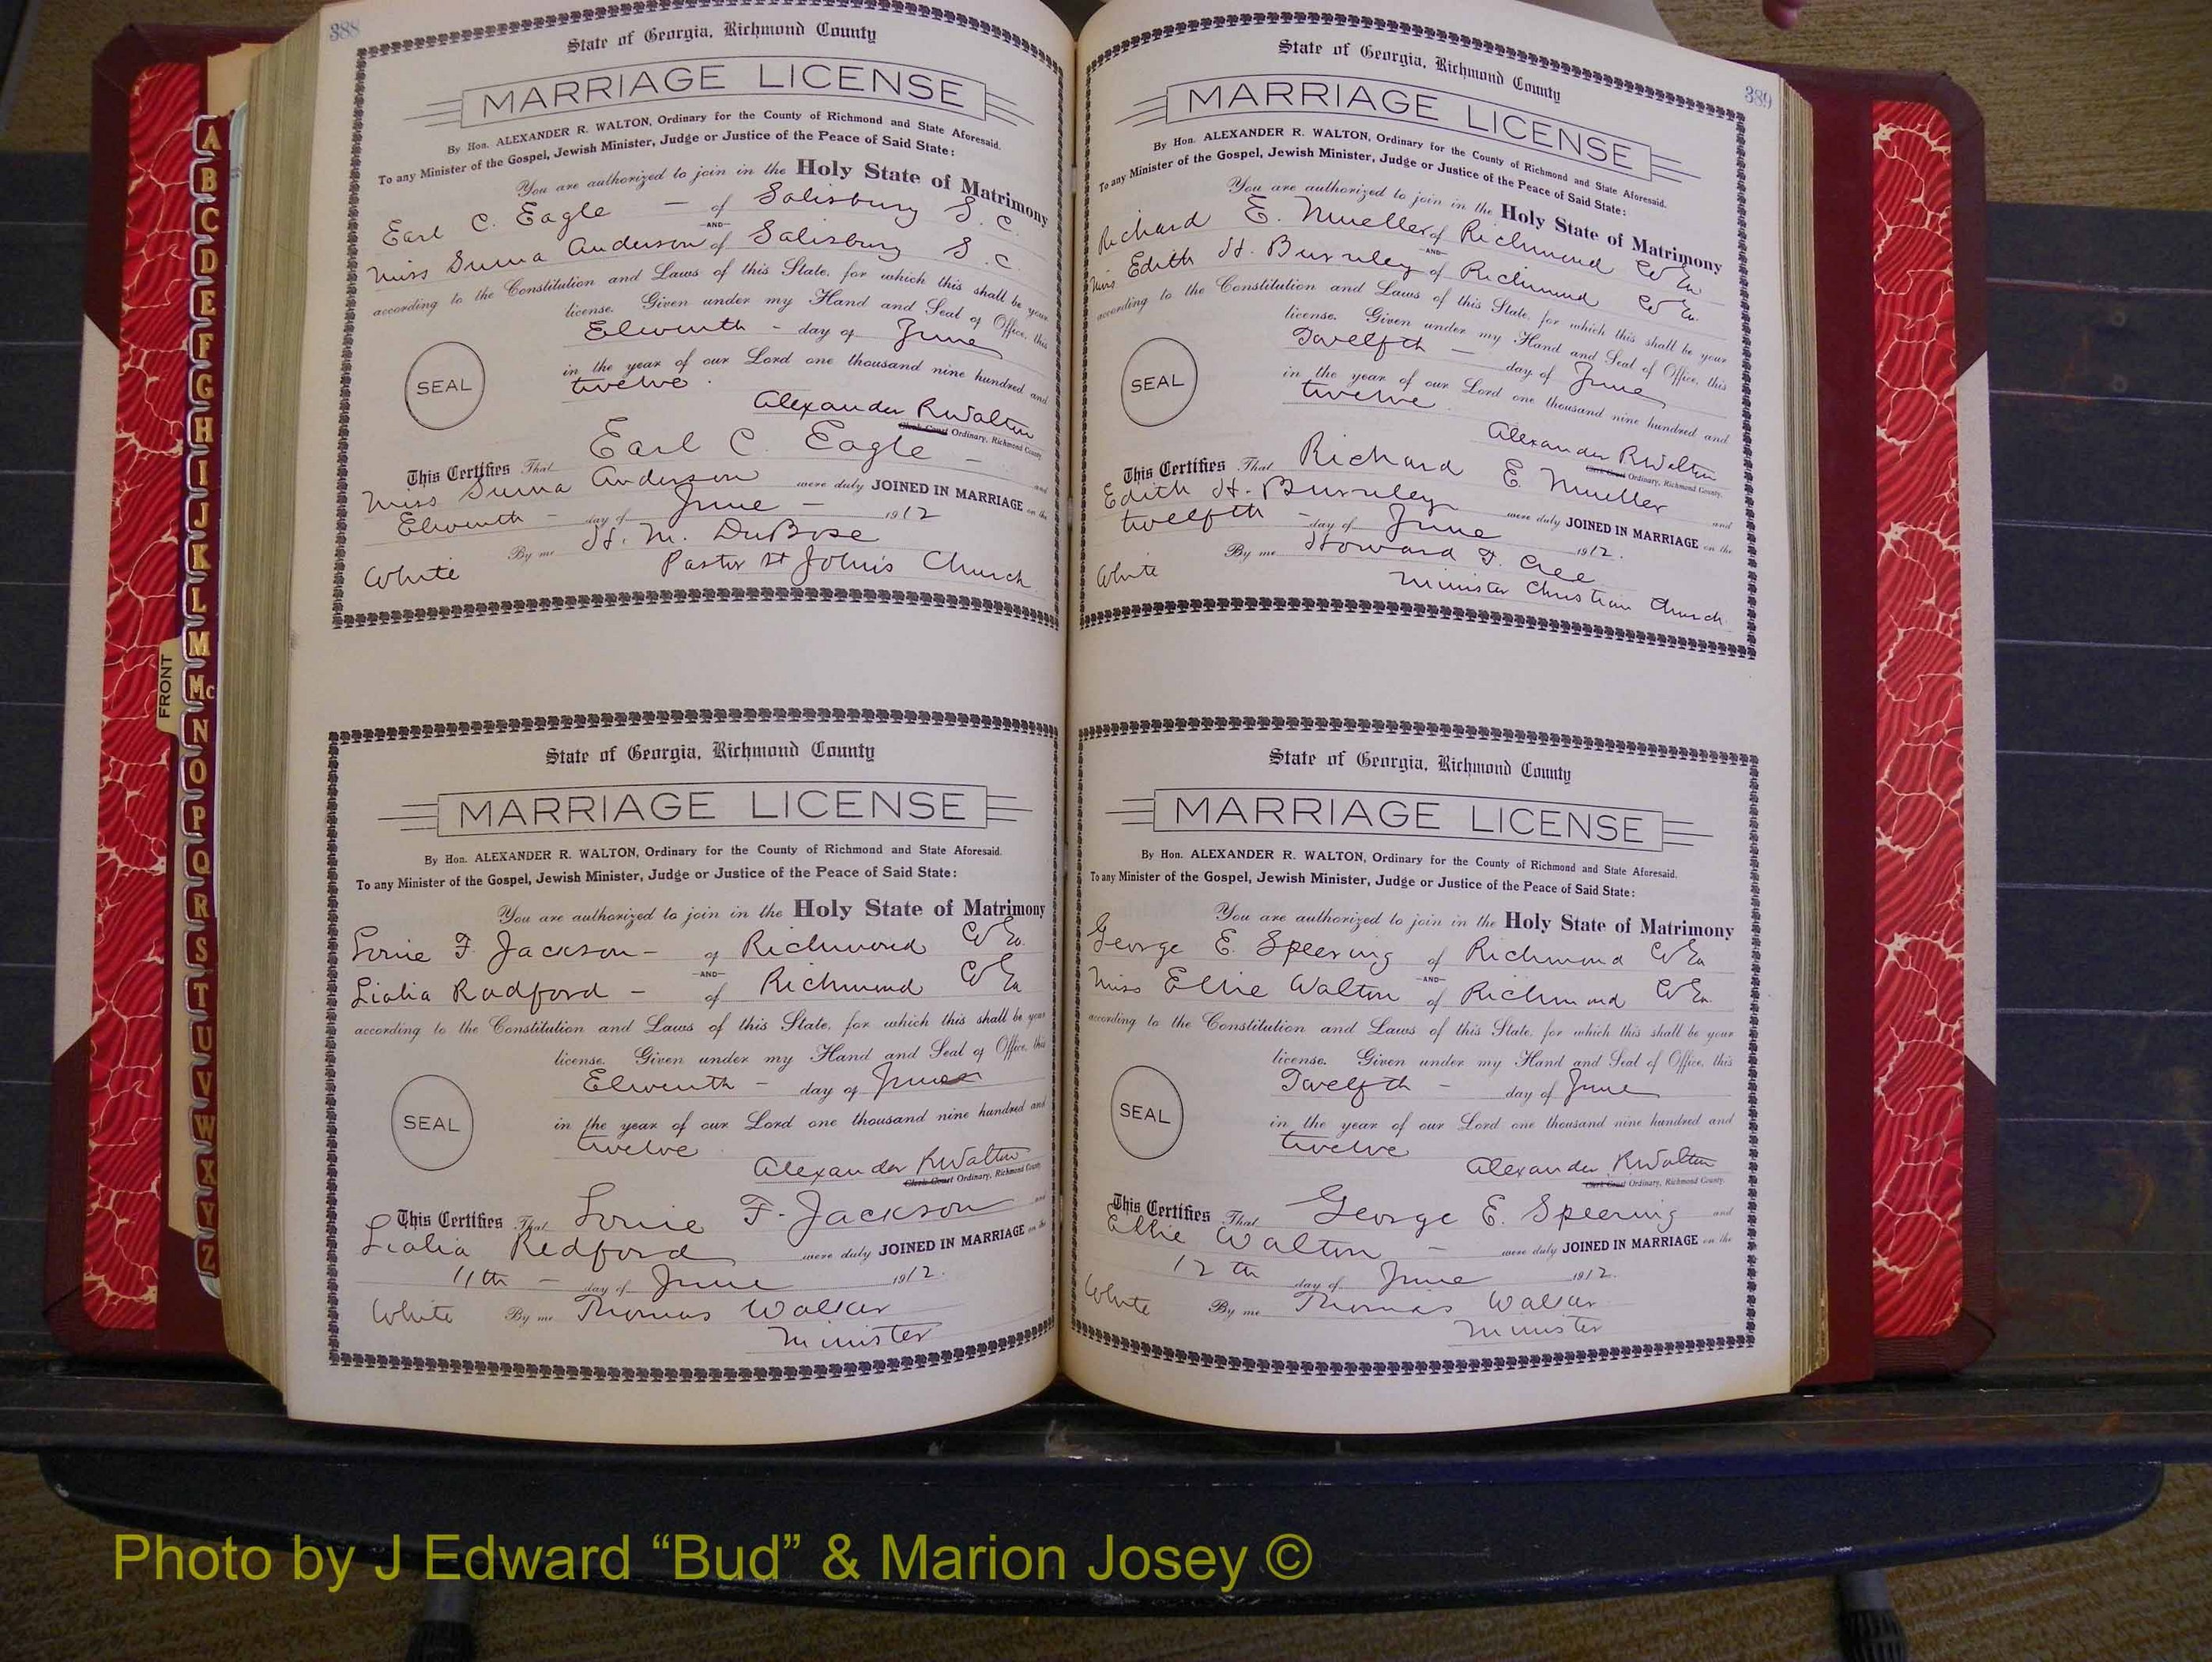 388
State of Georgia, Richmond County
MARRIAGE LICENSE
By Hon. ALEXANDER R. WALTON, Ordinary for the County of Richmond and State Aforesaid.
To any Minister of the Gospel, Jewish Minister, Judge or Justice of the Peace of Said State:
You are authorized to join in the Holy State of Matrimony
Earl C. Eagle — of Salisbury S. C.
—AND—
Miss Anderson of Salisbury S. C.
according to the Constitution and Laws of this State, for which this shall be your
license. Given under my Hand and Seal of Office, this
Eleventh - day of June
in the year of our Lord one thousand nine hundred and
SEAL
twelve.
Alexander R Walton
Clerk Court Ordinary, Richmond County.
This Certifies That Earl C. Eagle — and
Miss Anderson were duly JOINED IN MARRIAGE on the
Eleventh - day of June - 1912
By me H. M. DuBose
White Pastor St John's Church
State of Georgia, Richmond County
MARRIAGE LICENSE
By Hon. ALEXANDER R. WALTON, Ordinary for the County of Richmond and State Aforesaid.
To any Minister of the Gospel, Jewish Minister, Judge or Justice of the Peace of Said State:
You are authorized to join in the Holy State of Matrimony
F. Jackson - of Richmond Co Ga.
—AND—
Radford - of Richmond Co Ga
according to the Constitution and Laws of this State, for which this shall be your
license. Given under my Hand and Seal of Office, this
Eleventh - day of June
SEAL
in the year of our Lord one thousand nine hundred and
twelve
Alexander R Walton
Clerk Court Ordinary, Richmond County
This Certifies That F. Jackson and
Redford were duly JOINED IN MARRIAGE on the
11th - day of June 1912.
White By me Thomas Walker
Minister
389
State of Georgia, Richmond County
MARRIAGE LICENSE
By Hon. ALEXANDER R. WALTON, Ordinary for the County of Richmond and State Aforesaid.
To any Minister of the Gospel, Jewish Minister, Judge or Justice of the Peace of Said State:
You are authorized to join in the Holy State of Matrimony
Richard E. Mueller of Richmond Co Ga
—AND—
Miss Edith H. Burnley of Richmond Co Ga.
according to the Constitution and Laws of this State, for which this shall be your
license. Given under my Hand and Seal of Office, this
Twelfth — day of June
SEAL
in the year of our Lord one thousand nine hundred and
twelve
Alexander R Walton
Clerk Court Ordinary, Richmond County.
This Certifies That Richard E. Mueller and
Edith H. Burnley were duly JOINED IN MARRIAGE on the
twelfth - day of June 1912.
By me Howard T. Cree
White Minister Christian Church
State of Georgia, Richmond County
MARRIAGE LICENSE
By Hon. ALEXANDER R. WALTON, Ordinary for the County of Richmond and State Aforesaid.
To any Minister of the Gospel, Jewish Minister, Judge or Justice of the Peace of Said State:
You are authorized to join in the Holy State of Matrimony
George E. Speering of Richmond Co Ga
—AND—
Miss Ellie Walton of Richmond Co Ga.
according to the Constitution and Laws of this State, for which this shall be your
license. Given under my Hand and Seal of Office, this
Twelfth - day of June
SEAL
in the year of our Lord one thousand nine hundred and
twelve
Alexander R Walton
Clerk Court Ordinary, Richmond County.
This Certifies That George E. Speering and
Ellie Walton - were duly JOINED IN MARRIAGE on the
12th day of June 1912.
White By me Thomas Walker
Minister
A
B
C
D
E
F
G
H
I
J
K
L
M
Mc
N
O
P
Q
R
S
T
U
V
W
X
Y
Z
FRONT
Photo by J Edward “Bud” & Marion Josey ©